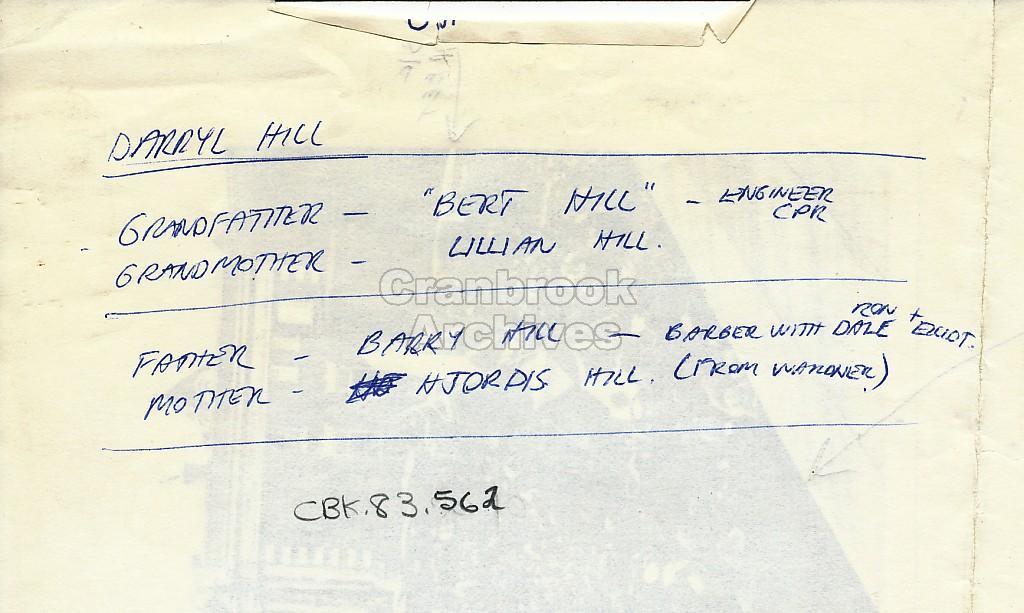 DARRYL HILL
GRANDFATHER — "BERT HILL" — ENGINEER CPR
GRANDMOTHER — LILLIAN HILL.
Cranbrook Archives
FATHER — BARRY HILL — BARBER WITH DALE RON + ELLIOT.
MOTHER — HJORDIS HILL. (FROM WARDNER)
CBK.83.562